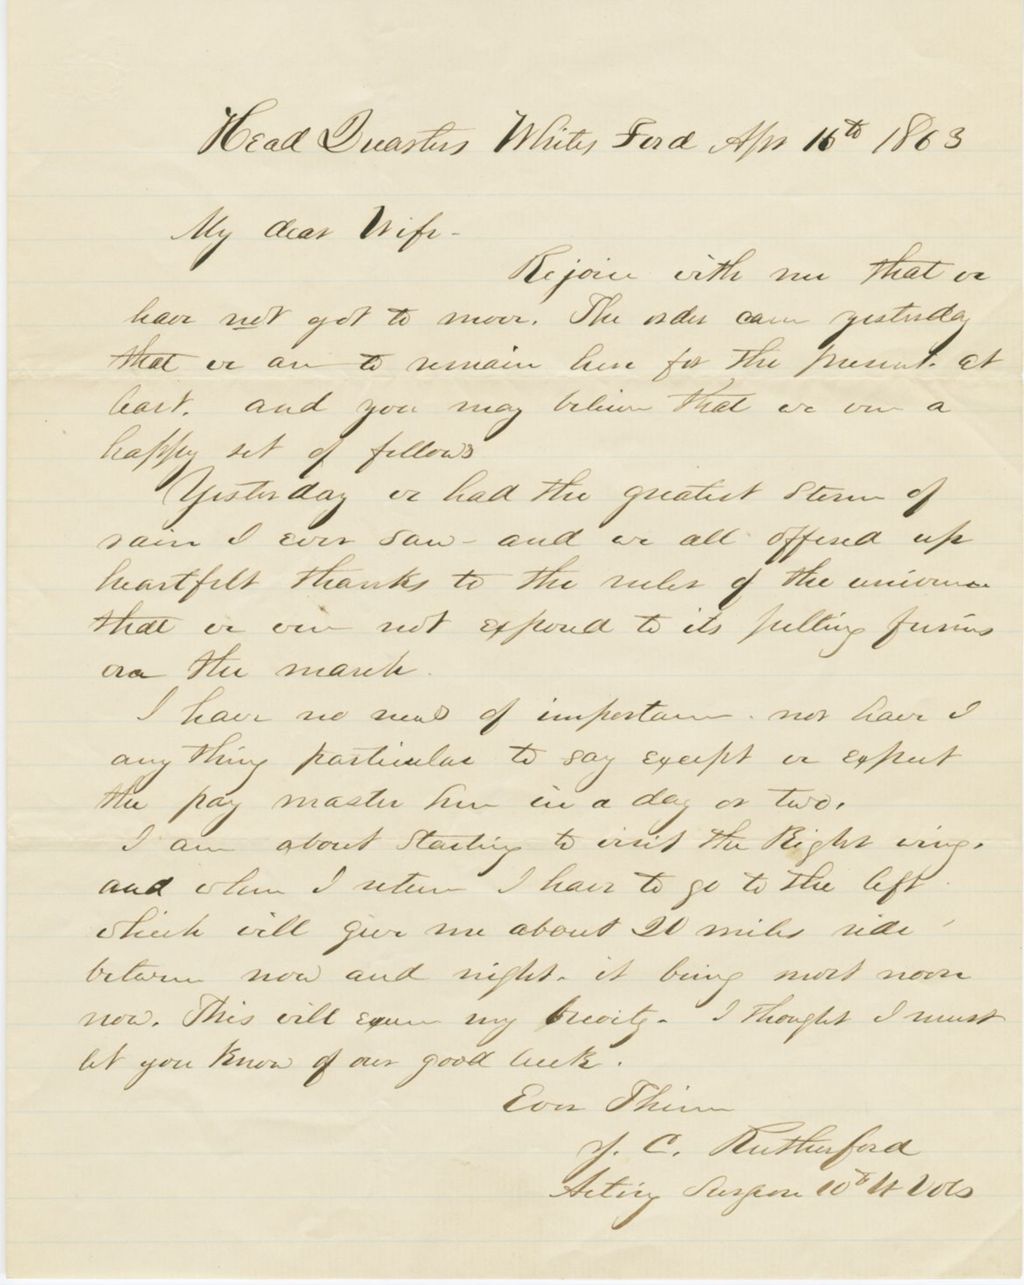 Head Quarters Whites Ford Apr 16th 1863
My dear Wife -
Rejoice with me that we
have not got to move. The order came yesterday
that we are to remain here for the present. at
least. and you may believe that we are a
happy set of fellows
Yesterday we had the greatest storm of
rain I ever saw - and we all offered up
heartfelt thanks to the ruler of the universe
that we were not exposed to its pelting furies
on the march.
I have no news of importance. nor have I
any thing particular to say except we expect
the pay master here in a day or two.
I am about starting to visit the Right wing.
and when I return I have to go to the left
which will give me about 20 miles ride
between now and night. it being most noon
now. This will excuse my brevity. I thought I must
let you know of our good luck.
Ever Thine
J. C. Rutherford
Acting Surgeon 10th Vt Vols